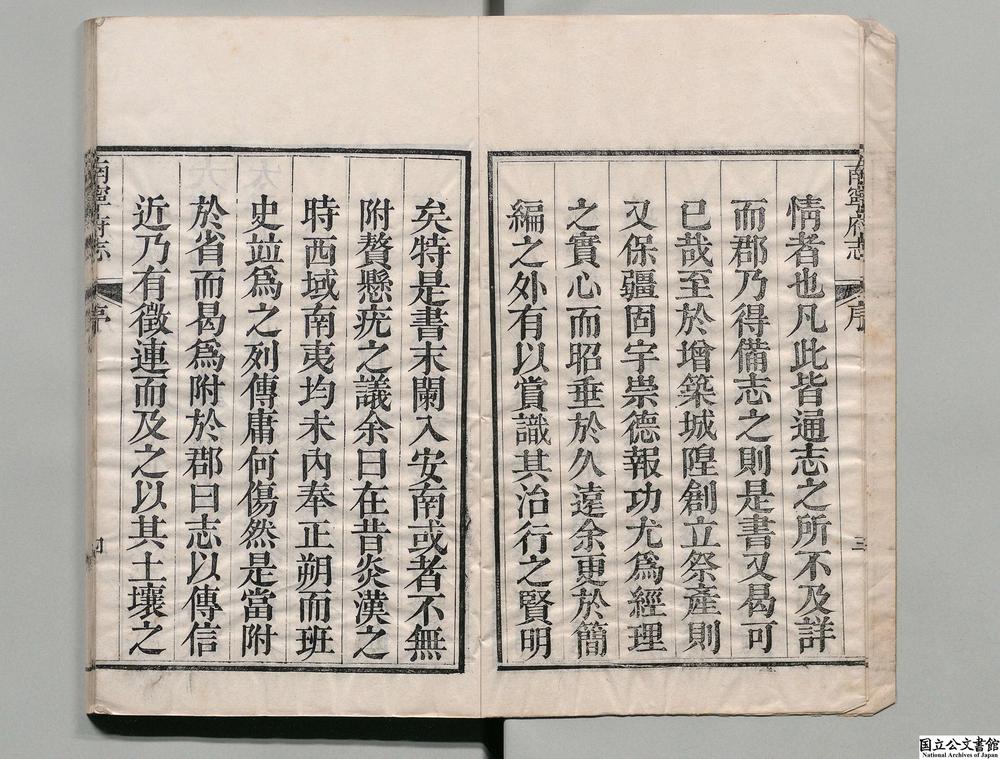 南寧府志
序
三
情者也凡此皆通志之所不及詳
而郡乃得備志之則是書又曷可
已哉至於增築城隍創立祭產則
又保疆固宇崇德報功尤爲經理
之實心而昭垂於久遠余更於簡
編之外有以賞識其治行之賢明
矣特是書末闌入安南或者不無
附贅懸疣之議余曰在昔炎漢之
時西域南夷均未內奉正朔而班
史竝爲之列傳庸何傷然是當附
於省而曷爲附於郡曰志以傳信
近乃有徵連而及之以其土壤之
南寧府志
序
四
国立公文書館
National Archives of Japan